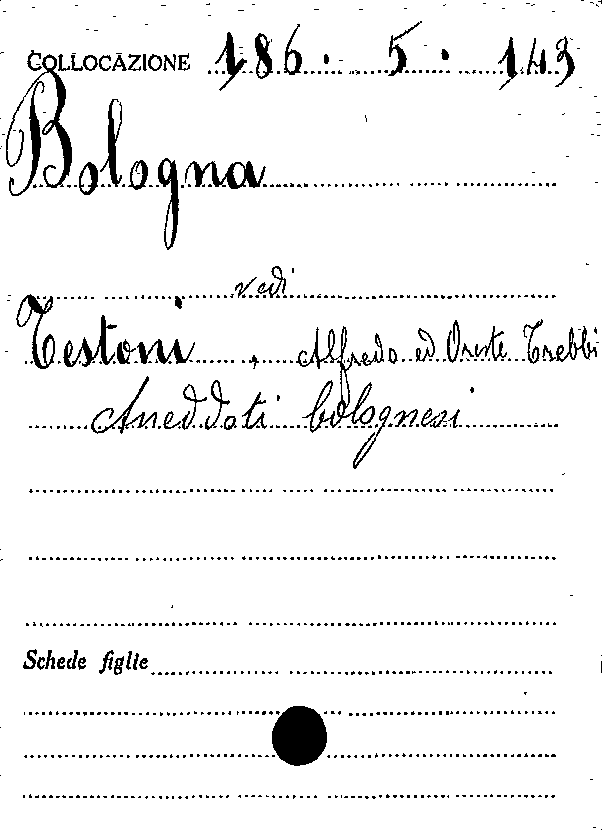 COLLOCAZIONE 186. 5. 143
Bologna
vedi
Testoni, Alfredo ed Oreste Trebbi
Aneddoti bolognesi
Schede figlie